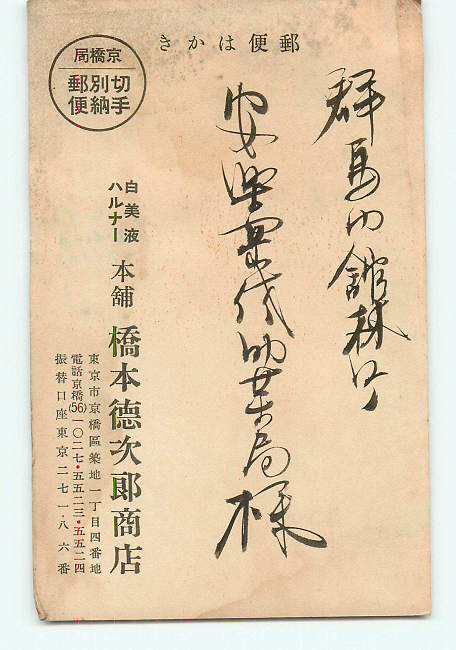 郵便はかき
群馬 館林町
安樂岡代助 局様
京橋局
切手
別納
郵便
白美液
ハルナー
本舖 橋本德次郎商店
東京市京橋區築地一丁目四番地
電話京橋(56)一〇二七・五五二三・五五二四
振替口座東京二七一八六番